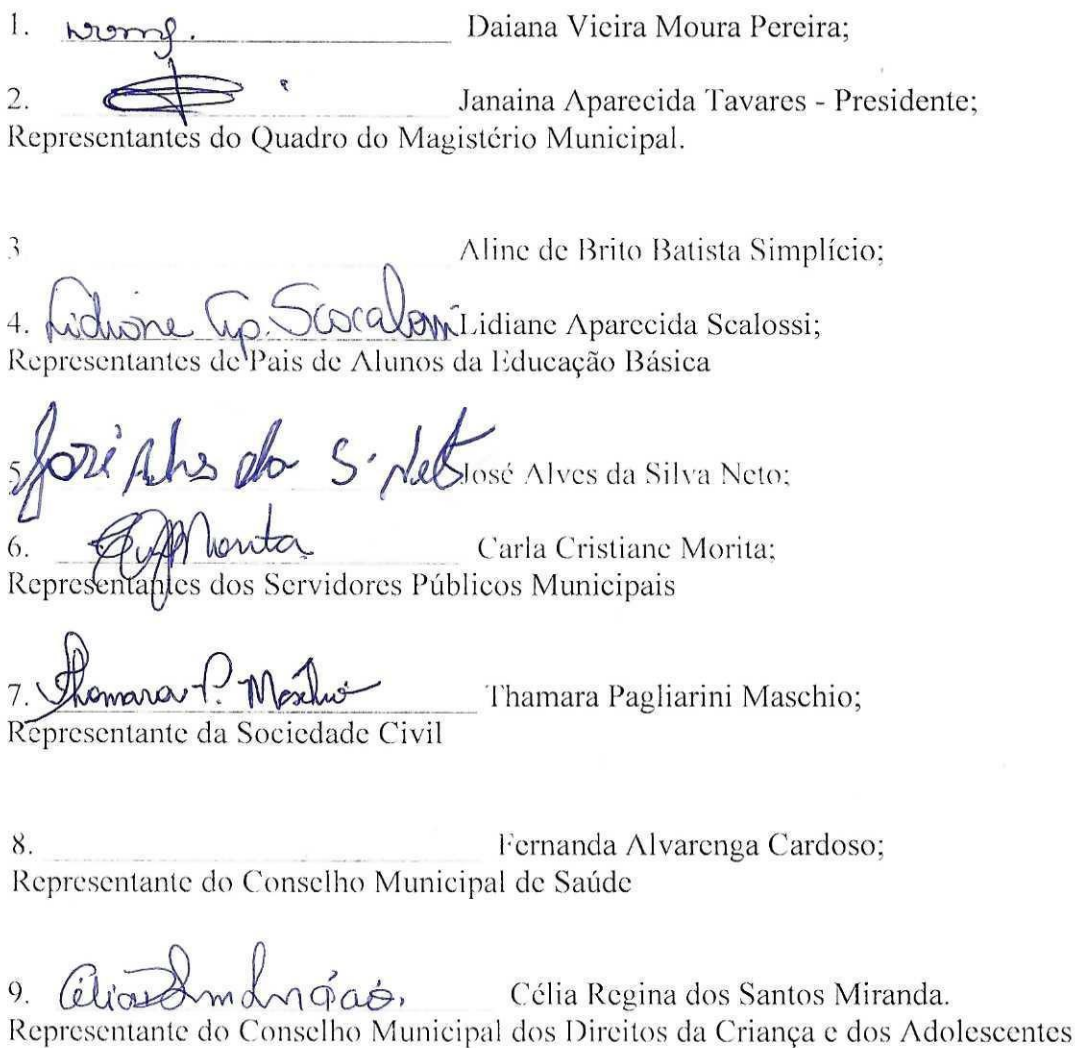 1. Daiana Vieira Moura Pereira;
2. Janaina Aparecida Tavares - Presidente;
Representantes do Quadro do Magistério Municipal.
3 Aline de Brito Batista Simplício;
4. Lidiane Ap. Lidiane Aparecida Scalossi;
Representantes de Pais de Alunos da Educação Básica
5 José Alves da S. Neto José Alves da Silva Neto;
6. Morita Carla Cristiane Morita;
Representantes dos Servidores Públicos Municipais
7. Thamara P. Maschio Thamara Pagliarini Maschio;
Representante da Sociedade Civil
8. Fernanda Alvarenga Cardoso;
Representante do Conselho Municipal de Saúde
9. Célia Regina dos Santos Miranda.
Representante do Conselho Municipal dos Direitos da Criança e dos Adolescentes